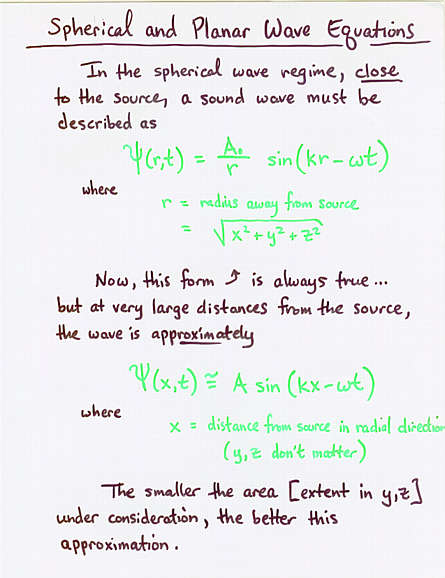 Spherical and Planar Wave Equations
In the spherical wave regime, close
to the source, a sound wave must be
described as
Ψ(r,t) = A₀/r sin(kr-ωt)
where
r = radius away from source
= √x²+y²+z²
Now, this form ⤴ is always true...
but at very large distances from the source,
the wave is approximately
Ψ(x,t) ≅ A sin(kx-ωt)
where
x = distance from source in radial direction
(y,z don't matter)
The smaller the area [extent in y,z]
under consideration, the better this
approximation.